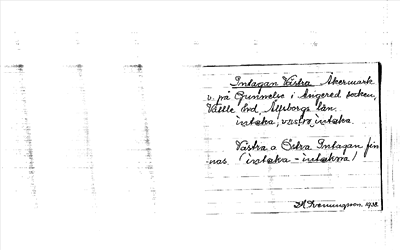 Intagan Västra Åkermark
v. på Gunnelse i Angered socken,
Vättle hd, Älvsborgs län.
intaka, västra, intaka.
Västra o Östra Intagan fin
nas. (intaka - intakona)
1938.